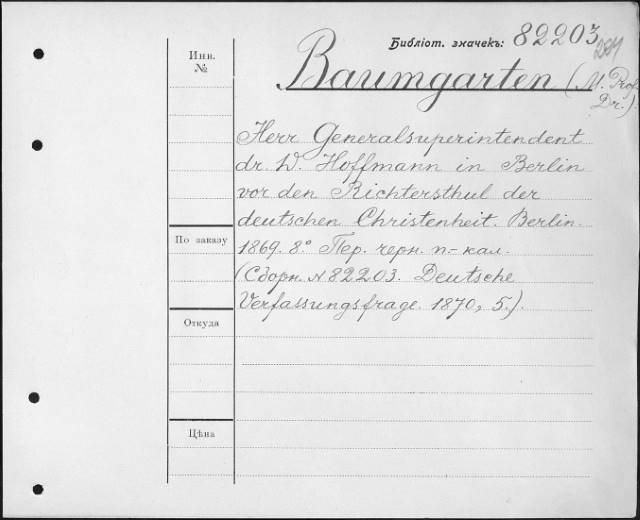 Библіот. значекъ: 82203
Инв.
№
Baumgarten (M. Prof.
Dr.)
Herr Generalsuperintendent
dr. W. Hoffmann in Berlin
vor den Richtersthul der
deutschen Christenheit. Berlin.
1869. 8° Пер. черн. п.-кал.
По заказу
(Сборн. № 82203. Deutsche
Verfassungsfrage. 1870, 5.)
Откуда
Цѣна